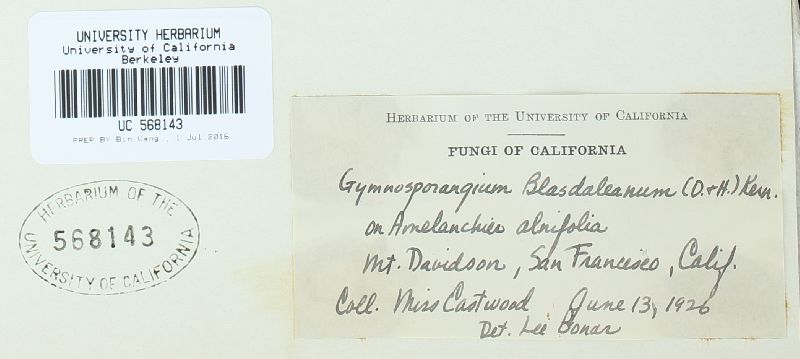 UNIVERSITY HERBARIUM
University of California
Berkeley
UC 568143
PREP BY Bin Wang , 1 Jul 2016
HERBARIUM OF THE
568143
UNIVERSITY OF CALIFORNIA
HERBARIUM OF THE UNIVERSITY OF CALIFORNIA
FUNGI OF CALIFORNIA
Gymnosporangium Blasdaleanum (D.+H.) Kern.
on Amelanchier alnifolia
Mt. Davidson, San Francisco, Calif.
Coll. Miss Eastwood June 13, 1926
Det. Lee Bonar